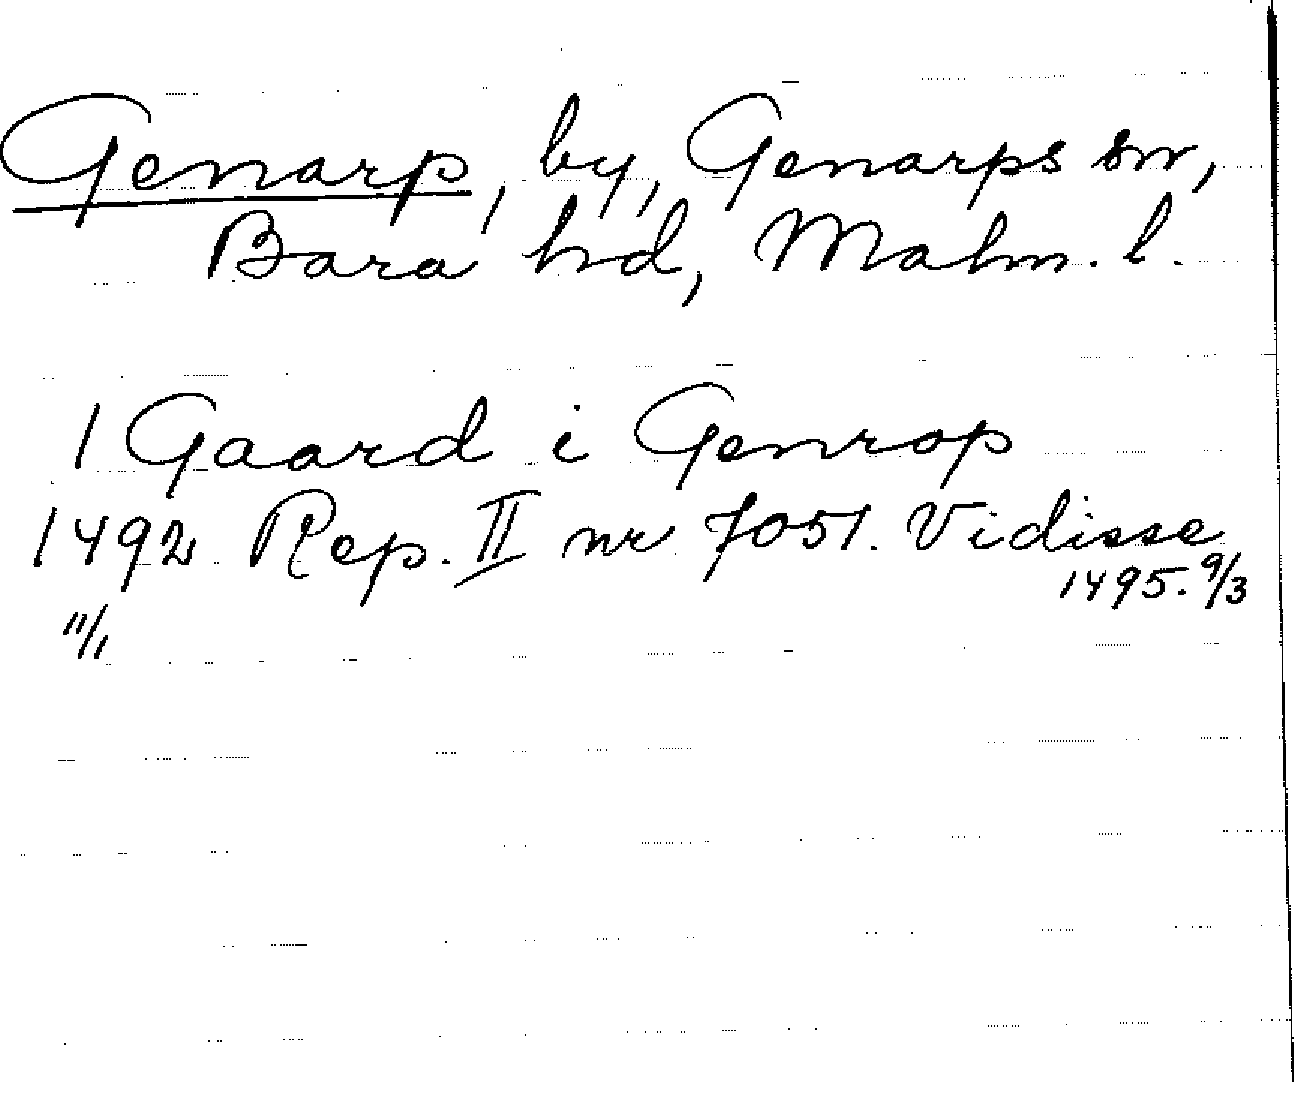 Genarp, by, Genarps sn,
Bara hd, Malm. l.
1 Gaard i Genrop
1492 Rep. II nr 7051. Vidisse
11/1 1495. 9/3